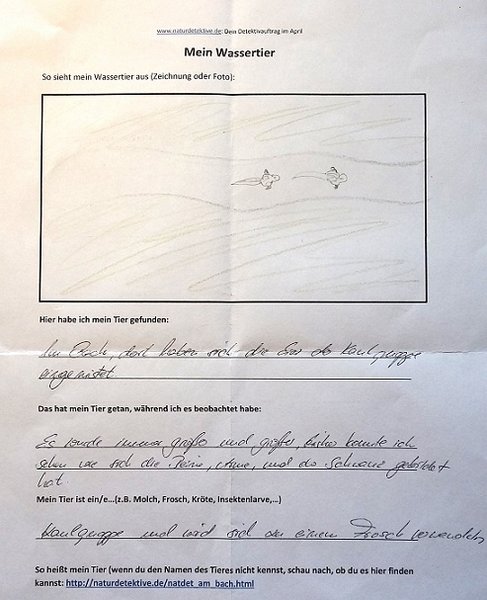 www.naturdetektive.de: Dein Detektivauftrag im April
Mein Wassertier
So sieht mein Wassertier aus (Zeichnung oder Foto):
Hier habe ich mein Tier gefunden:
Im Bach, dort haben sich die der Kaulquappe
eingenistet
Das hat mein Tier getan, während ich es beobachtet habe:
Es wurde immer größer und größer, konnte ich
sehen wie sich die Beine, Arme, und der Schwanz
hat.
Mein Tier ist ein/e...(z.B. Molch, Frosch, Kröte, Insektenlarve,...)
Kaulquappe und wird sich in einem Frosch
So heißt mein Tier (wenn du den Namen des Tieres nicht kennst, schau nach, ob du es hier finden
kannst: http://naturdetektive.de/natdet_am_bach.html